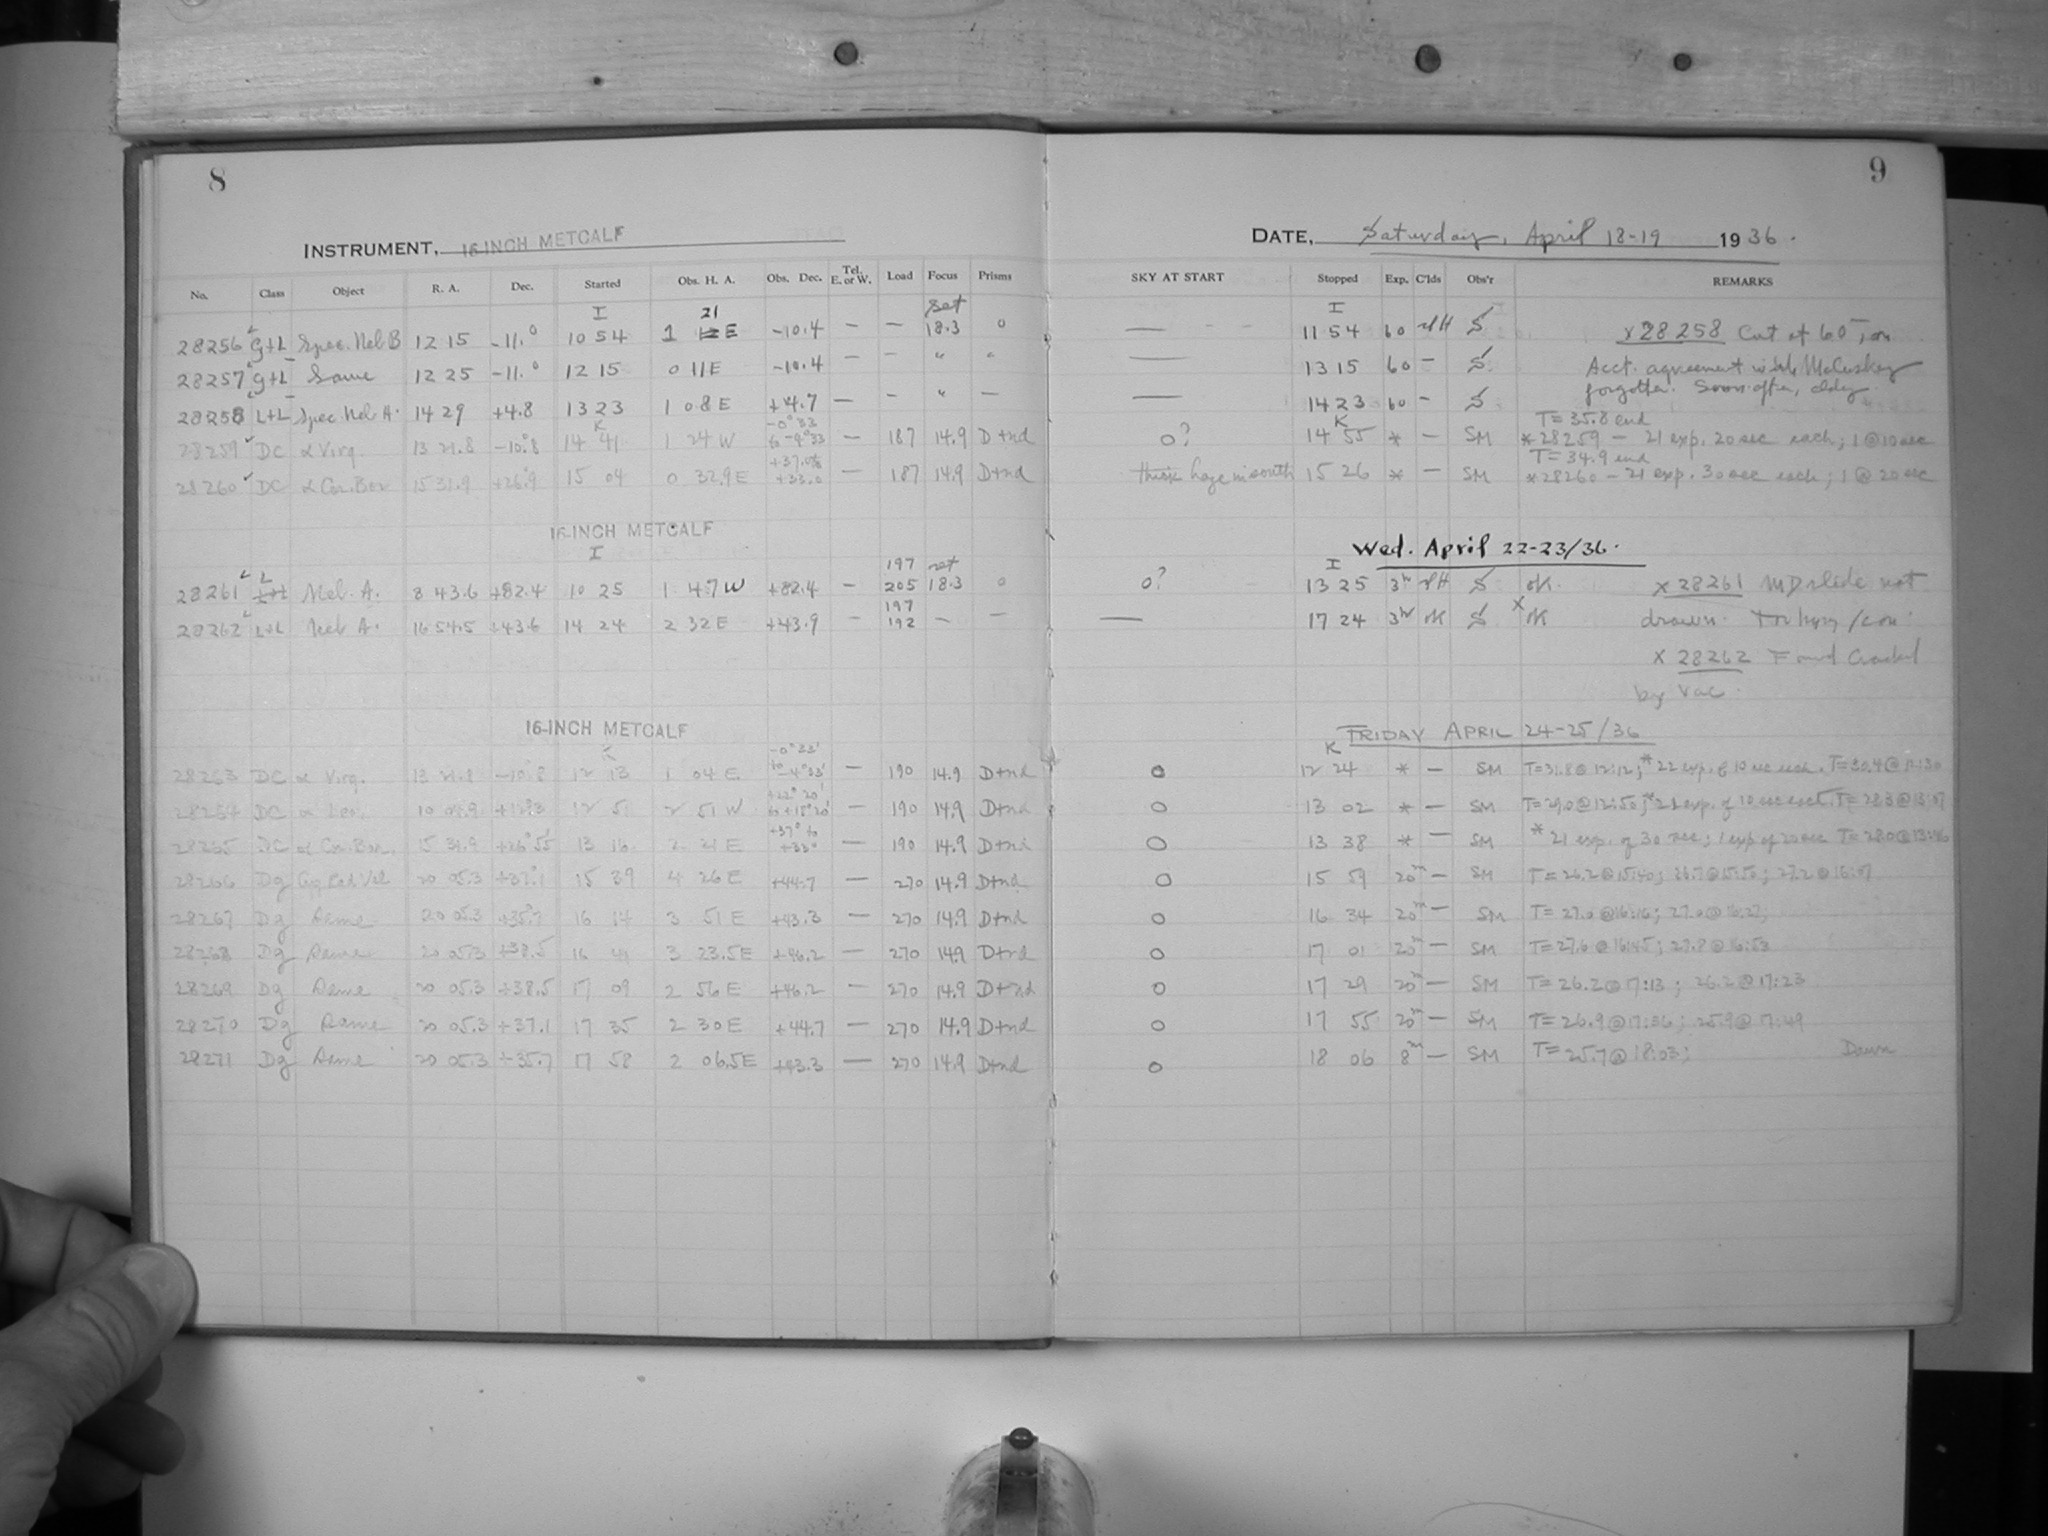 8
9
INSTRUMENT, 16-INCH METCALF
DATE, Saturday, April 18-19 1936.
No. Class Object R. A. Dec. Started Obs. H. A. Obs. Dec. Tel. E. or W. Load Focus Prisms SKY AT START Stopped Exp. C'lds Obs'r REMARKS
I 21 Set I
28256 G+L Spec. Neb B 12 15 -11.° 10 54 1 E -10.4 — — 18.3 o — 11 54 60 S x 28258 Cut at 60
28257 G+L Same 12 25 -11.° 12 15 0 11 E -10.4 — — " " — 13 15 60 — S Acct. agreement with McCuskey
forgotten. Soon after, cldy
28258 L+L Spec. Neb. A. 14 29 +4.8 13 23 1 08 E +4.7 — — " — — 14 23 60 — S
K K T = 35.8 end
28259 DC α Virg. 13 21.8 -10°.8 14 41 1 24 W -0°33 to -4°33 — 187 14.9 D+nd o? 14 55 * — SM *28259 — 21 exp. 20 sec each; 1 @ 10 sec
T = 34.9 end
28260 DC α Cor. Bor 15 31.9 +26°.9 15 04 0 32.9 E +33.0 — 187 14.9 D+nd thick haze in south 15 26 * — SM *28260 — 21 exp. 30 sec each; 1 @ 20 sec
16-INCH METCALF
Wed. April 22-23/36.
I 197 set I
28261 Neb. A. 8 43.6 +82.4 10 25 1 47 W +82.4 — 205 18.3 o o? 13 25 3h S OK. x 28261 slide not
197
28262 L+L Neb A. 16 54.5 +43.6 14 24 2 32 E +43.9 — 192 — — — 17 24 3h OK S x OK drawn.
x 28262 Found Cracked
by Vac.
16-INCH METCALF
FRIDAY APRIL 24-25/36
K K
28263 DC α Virg. 13 21.8 -10°.8 12 13 1 04 E -0°33' to -4°33' — 190 14.9 D+nd o 12 24 * — SM T=31.8@12:12; *22 exp. of 10 sec each. T=30.4@12:30
28264 DC α Leo. 10 12 51 2 51 W +22°20' to +18°20' — 190 14.9 D+nd o 13 02 * — SM T=29.0@12:50; *21 exp. of 10 sec each. T=28.3@13:07
28265 DC α Cor. Bor. 15 31.9 +26°55' 13 16 2 21 E +37° to +33° — 190 14.9 D+nd o 13 38 * — SM *21 exp. of 30 sec; 1 exp of 20 sec T=28.0@13:40
28266 Dg 20 05.3 +37°.1 15 39 4 26 E +44.7 — 270 14.9 D+nd o 15 59 20m — SM T=26.2@15:40; 26.7@15:50; 27.2@16:07
28267 Dg Same 20 05.3 +35°.7 16 14 3 51 E +43.3 — 270 14.9 D+nd o 16 34 20m — SM T=27.0@16:16; 27.0@16:27;
28268 Dg Same 20 05.3 +38.5 16 41 3 23.5 E +46.2 — 270 14.9 D+nd o 17 01 20m — SM T=27.6@16:45; 27.8@16:53
28269 Dg Same 20 05.3 +38.5 17 09 2 56 E +46.2 — 270 14.9 D+nd o 17 29 20m — SM T=26.2@17:13; 26.2@17:23
28270 Dg Same 20 05.3 +37.1 17 35 2 30 E +44.7 — 270 14.9 D+nd o 17 55 20m — SM T=26.9@17:36; 25.9@17:49
28271 Dg Same 20 05.3 +35.7 17 58 2 06.5 E +43.3 — 270 14.9 D+nd o 18 06 8m — SM T=25.7@18:03; Dawn